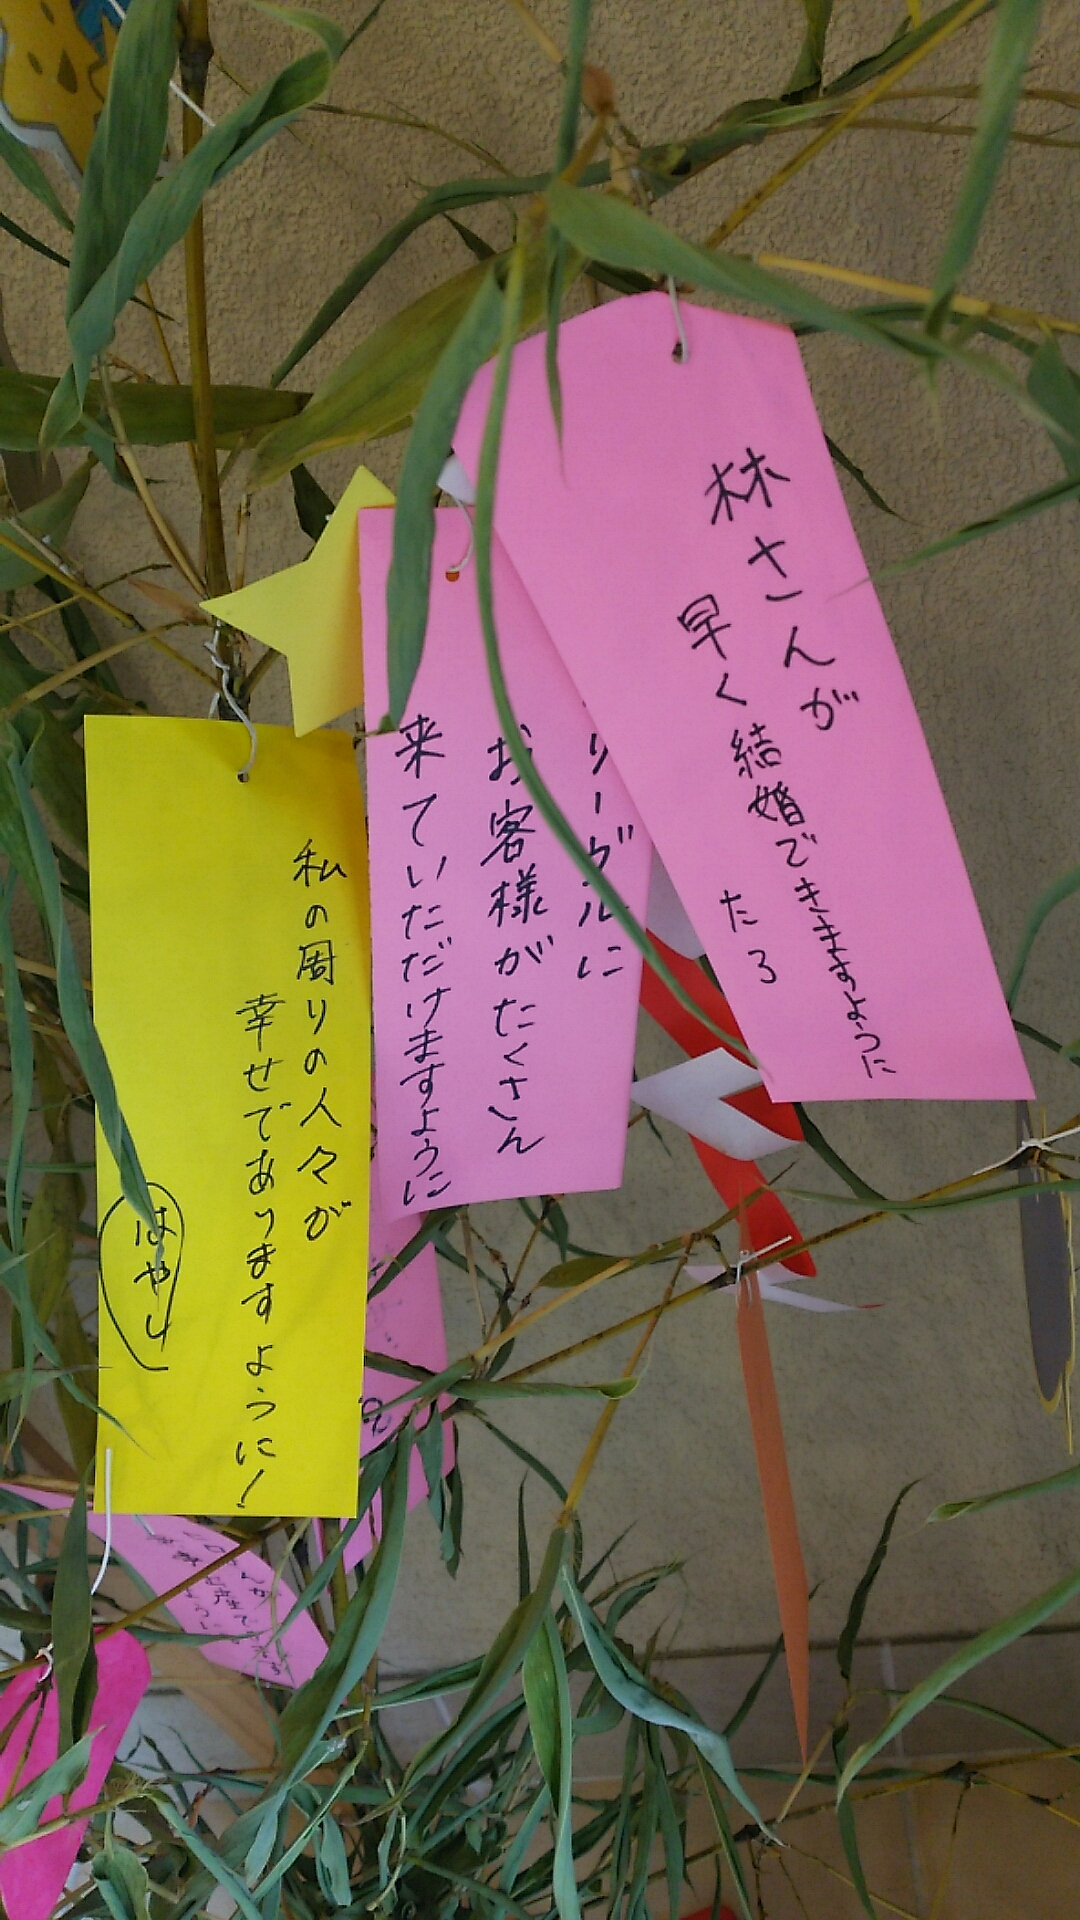 林さんが
早く結婚できますように
たろ
リーグルに
お客様がたくさん
来ていただけますように
私の周りの人々が
幸せであります ように!
はやし